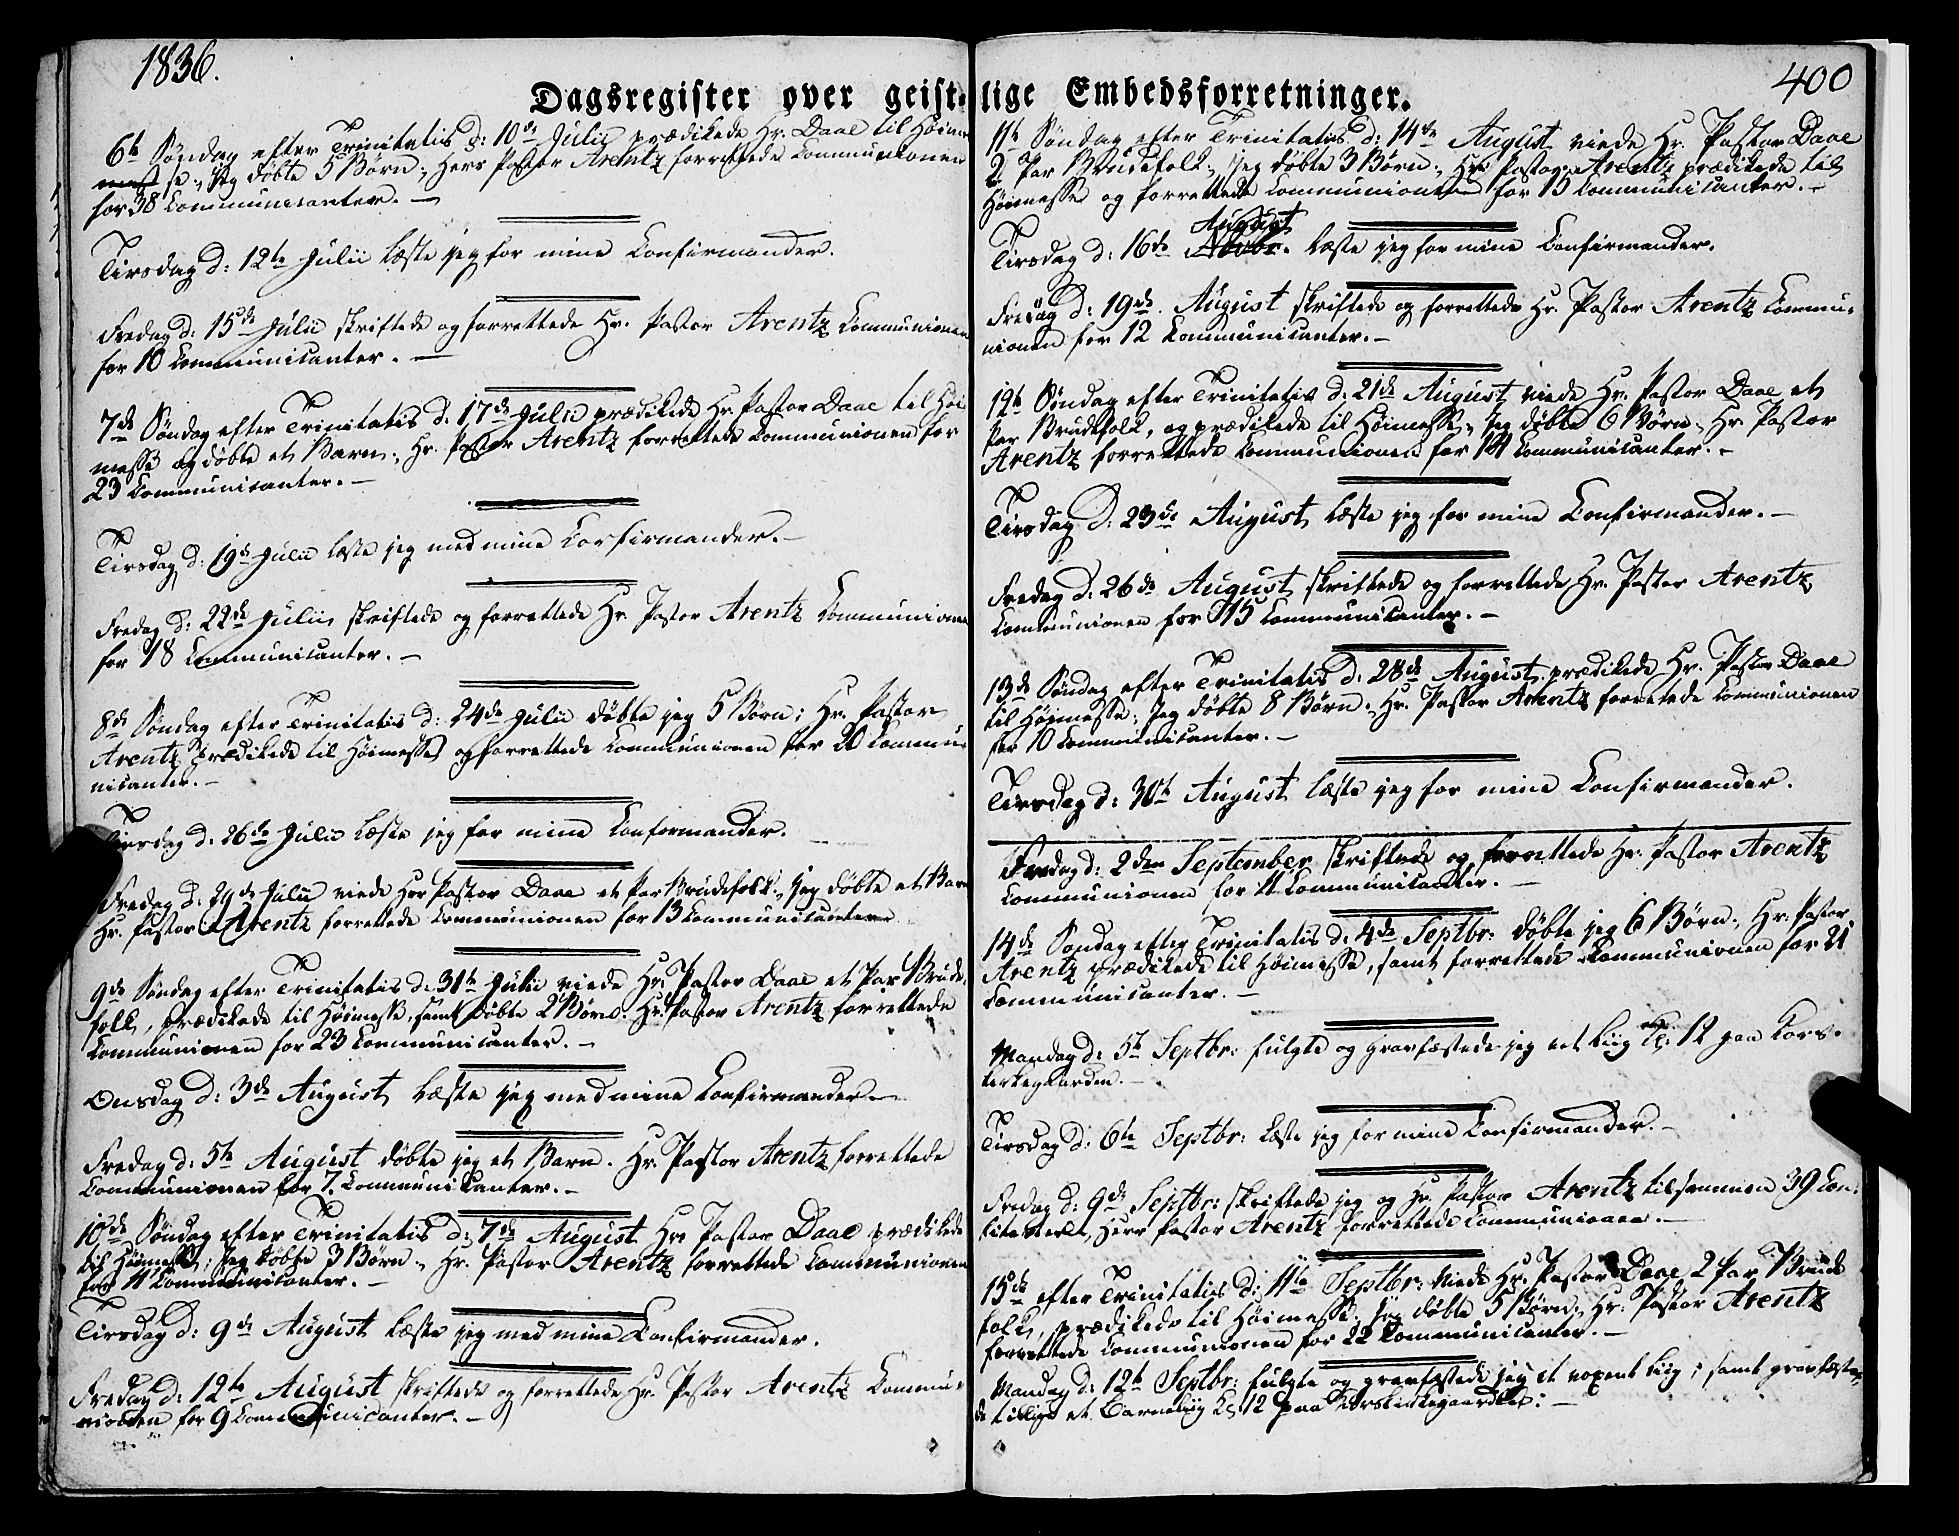 1836.
400
Dagsregister over geist-lige Embedsforretninger.
6te Søndag efter Trinitatis d: 10de Julii prædikede Hr. Daae til Høimes
se; jeg døbte 5 Børn; Herr Pastor Arentz forrettede Communionen
for 38 Communicanter. —
Tirsdag d: 12te Julii læste jeg for mine Confirmander.
Fredag d: 15de Julii skriftede og forrettede Hr. Pastor Arentz Communionen
for 10 Communicanter. —
7de Søndag efter Trinitatis d. 17de Julii prædikede Hr. Pastor Daae til Høi-
messe og døbte et Barn; Hr. Pastor Arentz forrettede Communionen for
23 Communicanter. —
Tirsdag d: 19de Julii læste jeg med mine Confirmander. —
Fredag d: 22de Julii skriftede og forrettede Hr. Pastor Arentz Communionen
for 18 Communicanter. —
8de Søndag efter Trinitatis d: 24de Julii døbte jeg 5 Børn; Hr. Pastor
Arentz prædikede til Høimesse og forrettede Communionen for 20 Commu-
nicanter. —
Tirsdag d: 26de Julii læste jeg for mine Conformander.
Fredag d: 29de Julii viede Herr Pastor Daae et Par Brudefolk; jeg døbte et Barn
Hr. Pastor Arentz forrettede Communionen for 13 Communicantere
9de Søndag efter Trinitatis d: 31te Julii viede Hr. Pastor Daae et Par Brude-
folk, prædikede til Høimesse, samt døbte 2 Børn. Hr. Pastor Arentz forrettede
Communionen for 23 Communicanter. —
Onsdag d: 3de August læste jeg med mine Confirmander. —
Fredag d: 5te August døbte jeg et Barn. Hr. Pastor Arentz forrettede
Communionen for 7. Communicanter. —
10de Søndag efter Trinitatis d: 7de August Hr. Pastor Daae prædikede
til Høimesse; Jeg døbte 3 Børn, Hr. Pastor Arentz forrettede Communionen
for 11 Communicanter. —
Tirsdag d: 9de August læste jeg med mine Confirmander.
Fredag d: 12te August skriftede og forrettede Hr. Pastor Arentz Commu-
nionen for 9 Communicanter. —
11te Søndag efter Trinitatis d: 14de August viede Hr. Pastor Daae
2 Par Brudefolk, Jeg døbte 3 Børn; Hr. Pastor Arentz prædikede til
Høimesse og forrettede Communionen for 15 Communicanter. —
August
Tirsdag d: 16de læste jeg for mine Confirmander.
Fredag d: 19de August skriftede og forrettede Hr. Pastor Arentz Commu-
nionen for 12 Communicanter. —
12te Søndag efter Trinitatis d. 21de August viede Hr. Pastor Daae et
Par Brudefolk, og prædikede til Høimesse, Jeg døbte 6 Børn, Hr. Pastor
Arentz forrettede Communionen for 14 Communicanter. —
Tirsdag d: 23de August læste jeg for mine Confirmander. —
Fredag d. 26de August skriftede og forrettede Hr. Pastor Arentz
Communionen for 15 Communicanter. —
13de Søndag efter Trinitatis d. 28de August prædikede Hr. Pastor Daae
til Høimesse; Jeg døbte 8 Børn. Hr. Pastor Arentz forrettede Communionen
for 10 Communicanter. —
Tirsdag d: 30te August læste jeg for mine Confirmander.
Fredag d: 2den September skriftede og forrettede Hr. Pastor Arentz
Communionen for 11 Communicanter. —
14de Søndag efter Trinitatis d. 4de Septbr: døbte jeg 6 Børn; Hr. Pastor
Arentz prædikede til Høimesse, samt forrettede Communionen for 21
Communicanter. —
Mandag d: 5te Septbr: fulgte og gravfæstede jeg eet Liig Kl: 12 paa Kors-
kirkegaarden. —
Tirsdag d: 6te Septbr: læste jeg for mine Confirmander. —
Fredag d: 9de Septbr: skriftede jeg og Hr. Pastor Arentz tilsammen 39 Con-
fitenter, Herr Pastor Arentz forrettede Communionen. —
15de efter Trinitatis d: 11te Septbr: viede Hr. Pastor Daae 2 Par Brude
folk, prædikede til Høimesse. Jeg døbte 5 Børn; Hr. Pastor Arentz
forrettede Communionen for 22 Communicanter. —
Mandag d: 12te Septbr: fulgte og gravfæstede jeg et voxent Liig; samt gravfæste-
de tillige et Barneliig Kl. 12 paa Korskirkegaarden. —